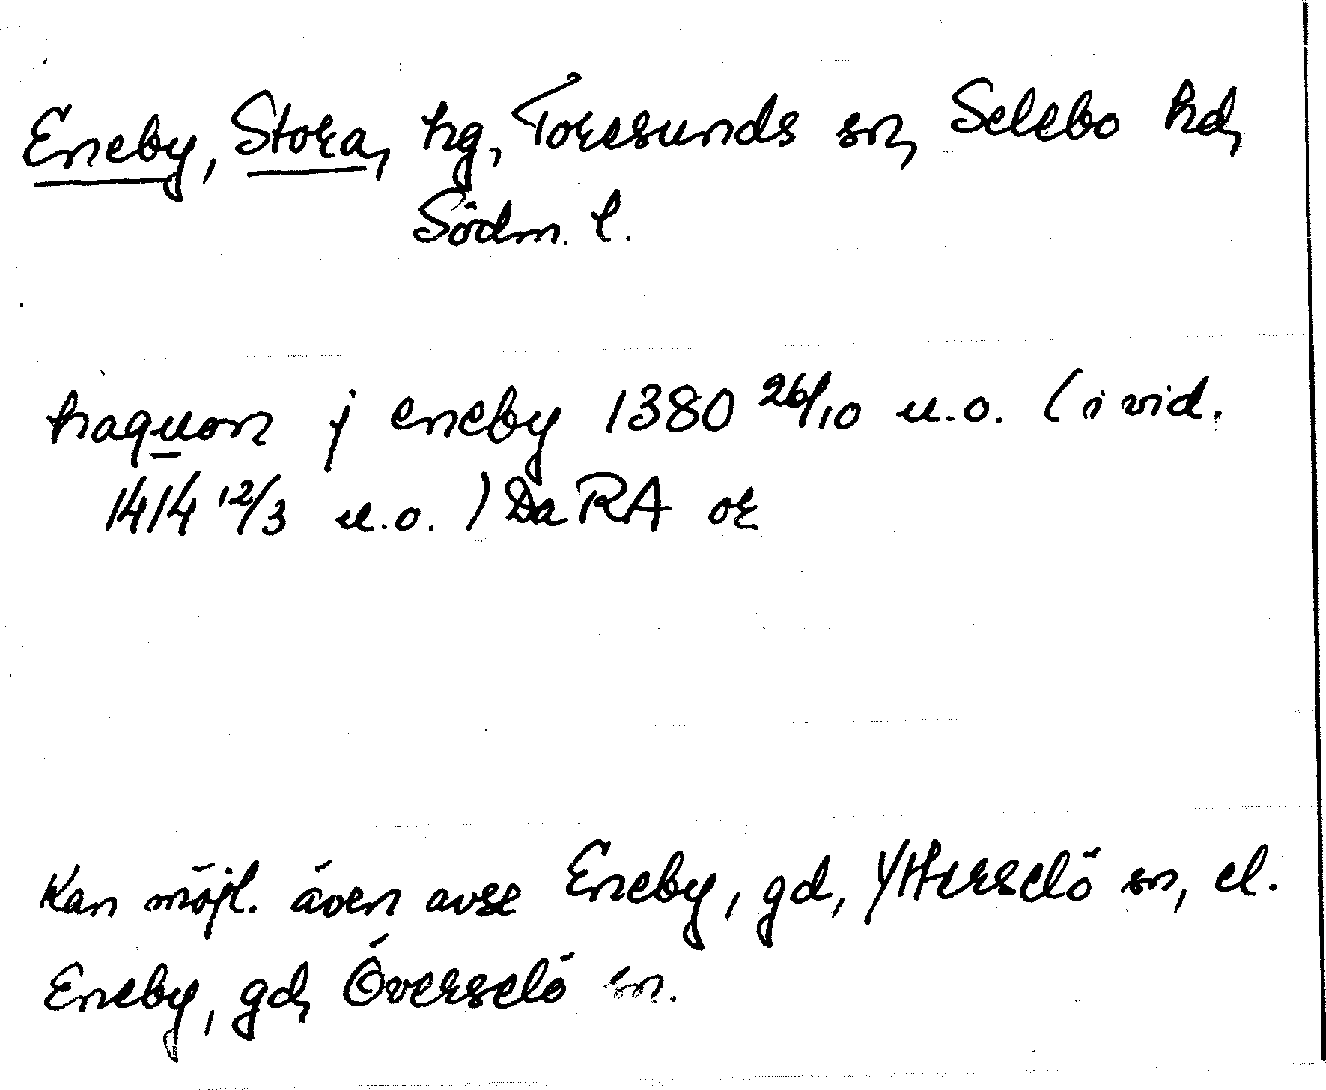 Eneby, Stora, hg, Toresunds sn, Selebo hd,
Södm. l.
haquon j eneby 1380 26/10 u.o. (i vid.
1414 12/3 u.o.) Da RA or
Kan möjl. även avse Eneby, gd, Ytterselö sn, el.
Eneby, gd, Överselö sn.